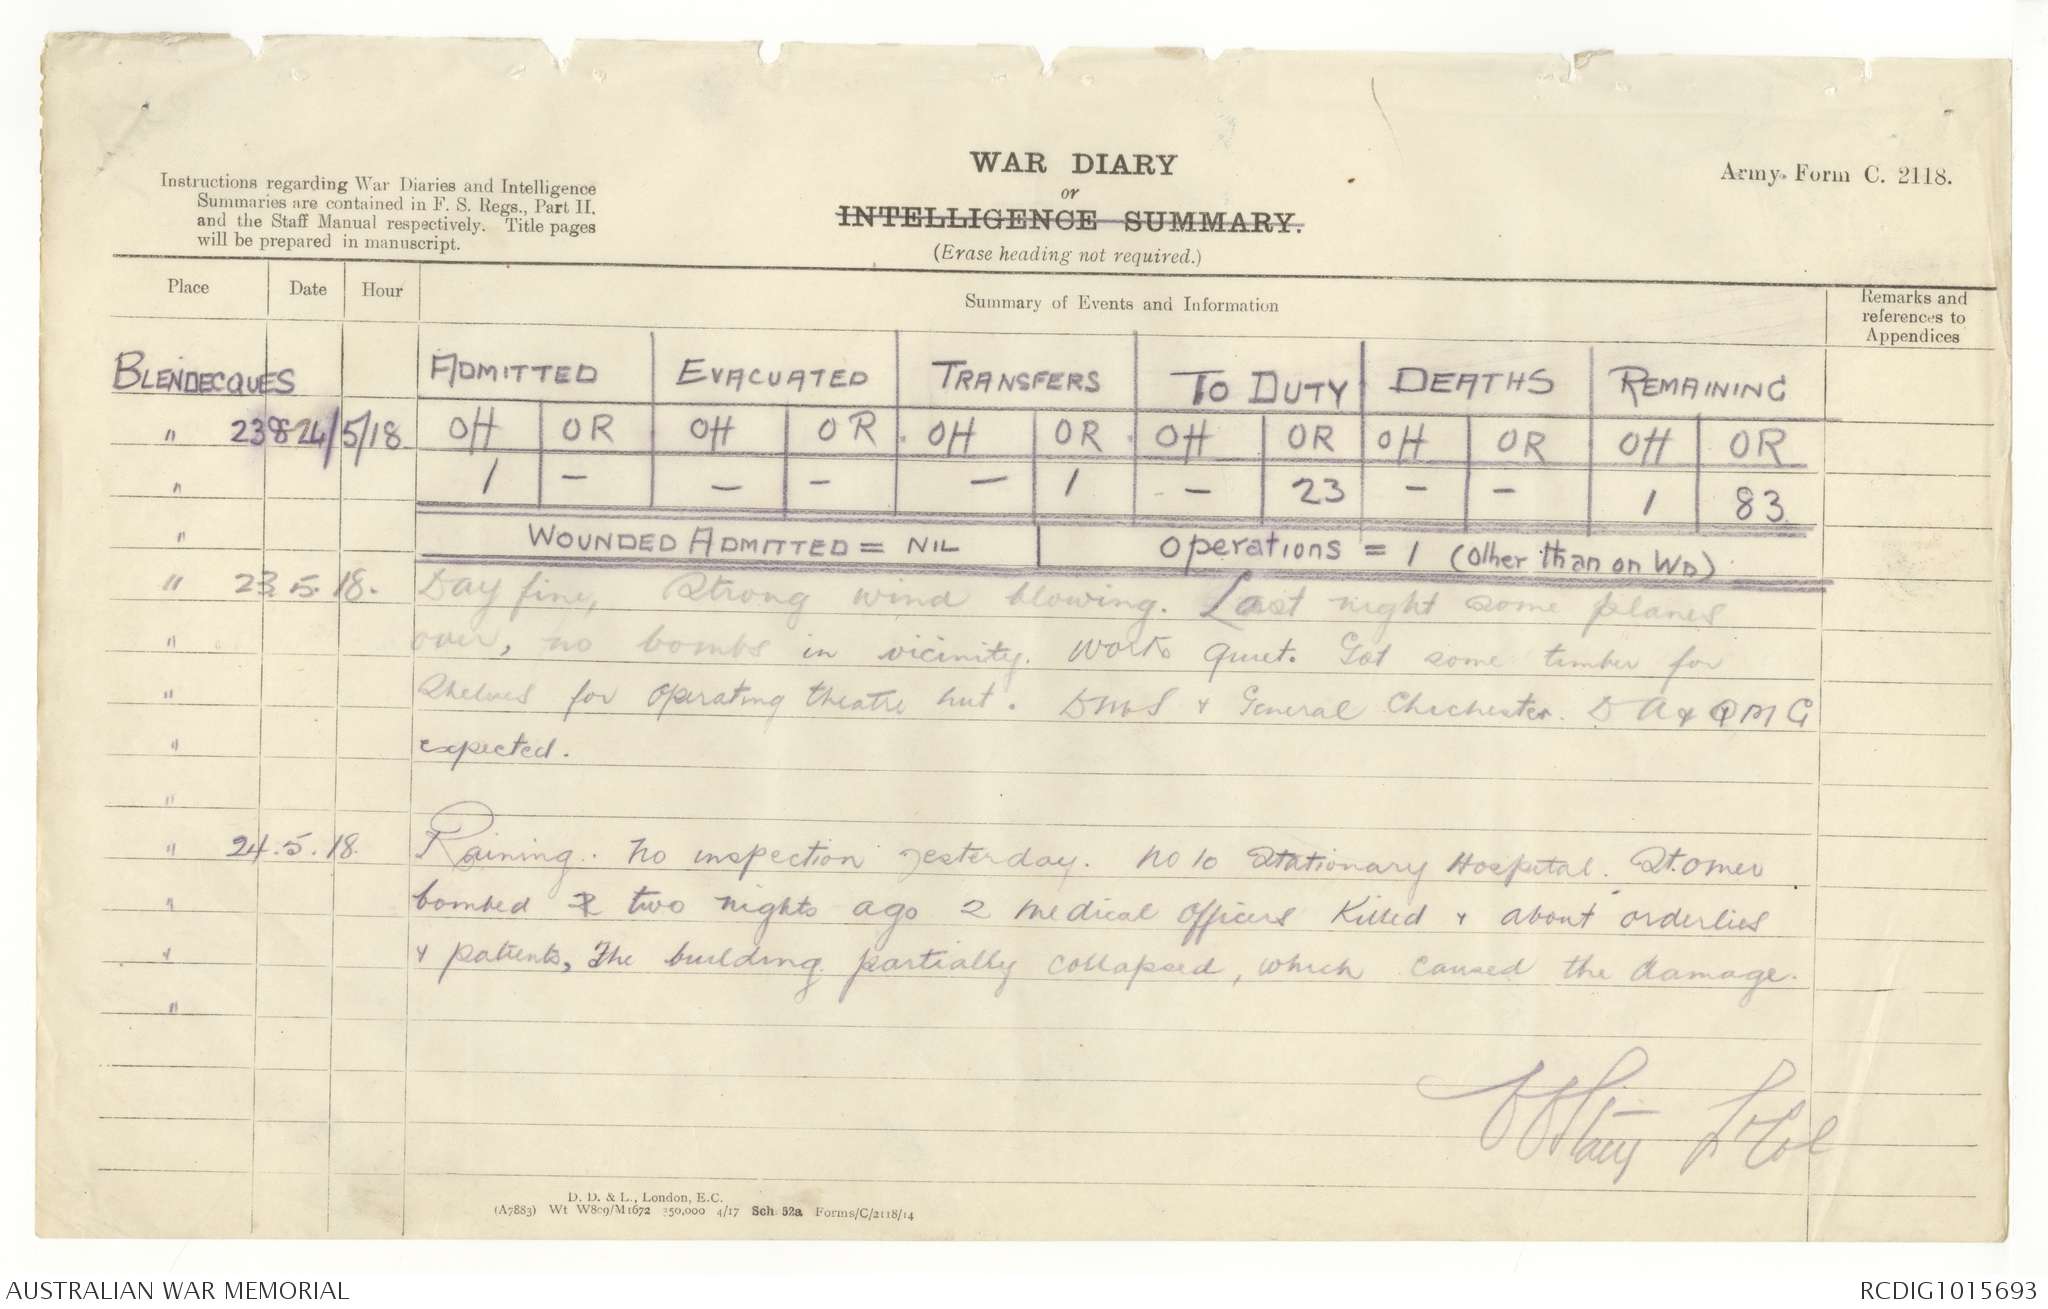 Instructions regarding War Diaries and Intelligence
Summaries are contained in F. S. Regs., Part II.
and the Staff Manual respectively. Title pages
will be prepared in manuscript.
WAR DIARY
or
INTELLIGENCE SUMMARY.
(Erase heading not required.)
Army Form C. 2118.
Place Date Hour Summary of Events and Information Remarks and references to Appendices
BLENDECQUES ADMITTED EVACUATED TRANSFERS TO DUTY DEATHS REMAINING
" 23 & 24/5/18 OH OR OH OR OH OR OH OR OH OR OH OR
" 1 – – – – 1 – 23 – – 1 83
" WOUNDED ADMITTED = NIL OPERATIONS = 1 (Other than on WD)
" 23.5.18. Day fine, Strong wind blowing. Last night some planes
" over, no bombs in vicinity. Work quiet. Got some timber for
" Shelves for operating theatre hut. DMS & General Chichester. D A & Q M G
" expected.
"
" 24.5.18. Raining. No inspection yesterday. No 10 Stationary Hospital. St. Omer
" bombed two nights ago 2 medical officers Killed & about orderlies
" & patients, The building partially collapsed, which caused the damage.
"
D. D. & L., London, E.C.
(A7883) Wt W809/M1672 350,000 4/17 Sch 52a Forms/C/2118/14
AUSTRALIAN WAR MEMORIAL RCDIG1015693